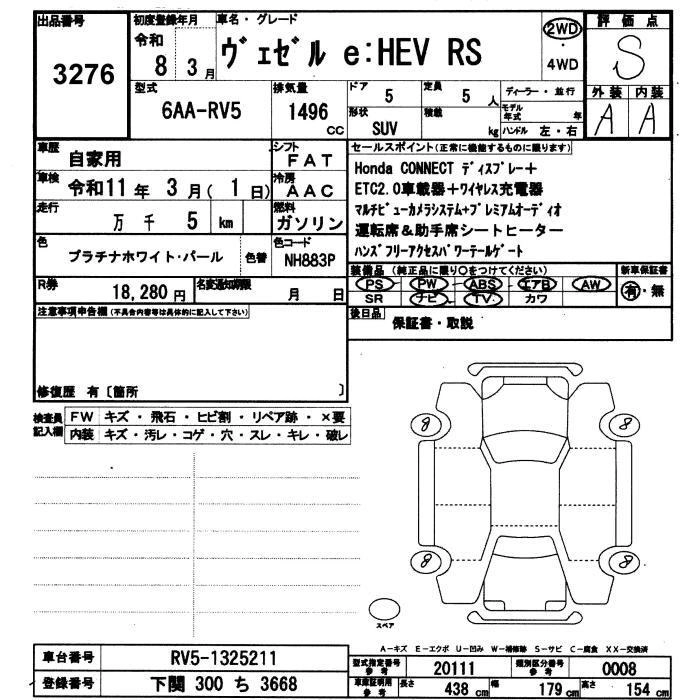 出品番号
3276
初度登録年月
令和
8 3月
車名・グレード
ヴェゼル e:HEV RS
2WD
・
4WD
評価点
S
外装 内装
A A
型式
6AA-RV5
排気量
1496
cc
ドア
5
定員
5 人
形状
SUV
積載
kg
ディーラー・並行
モデル年式 年
ハンドル 左・右
車歴
自家用
シフト
F A T
車検
令和11年 3月( 1日)
冷房
A A C
走行
万 千 5 km
燃料
ガソリン
色
プラチナホワイト・パール
色替
色コード
NH883P
R券
18,280 円
名変通知期限
月 日
セールスポイント(正常に機能するものに限ります)
Honda CONNECT ディスプレー+
ETC2.0車載器+ワイヤレス充電器
マルチビューカメラシステム+プレミアムオーディオ
運転席&助手席シートヒーター
ハンズフリーアクセスパワーテールゲート
装備品(純正品に限り○をつけてください)
新車保証書
PS PW ABS エアB AW
SR ナビ TV カワ
有・無
後日品
保証書・取説
注意事項申告欄(不具合内容等は具体的に記入して下さい)
修復歴 有〔箇所 〕
検査員記入欄
FW キズ・飛石・ヒビ割・リペア跡・×要
内装 キズ・汚レ・コゲ・穴・スレ・キレ・破レ
8 8
8 8
スペア
A-キズ E-エクボ U-凹み W-補修跡 S-サビ C-腐食 XX-交換済
車台番号
RV5-1325211
型式指定番号
参考
20111
類別区分番号
参考
0008
登録番号
下関 300 ち 3668
車庫証明用
参考
長さ
438 cm
幅
179 cm
高さ
154 cm